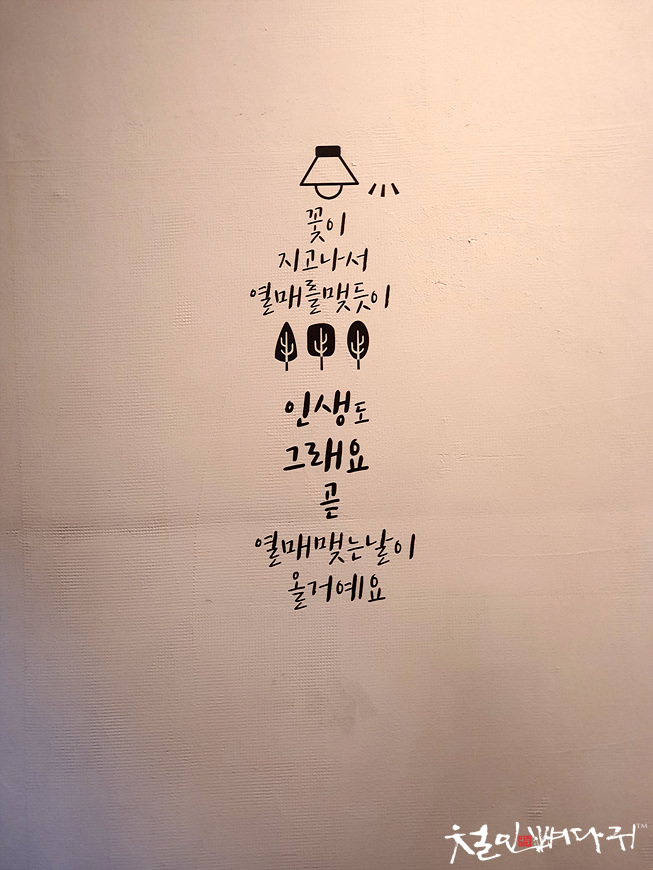 꽃이
지고나서
열매를맺듯이
인생도
그래요
곧
열매맺는날이
올거예요
철인뼈다귀™